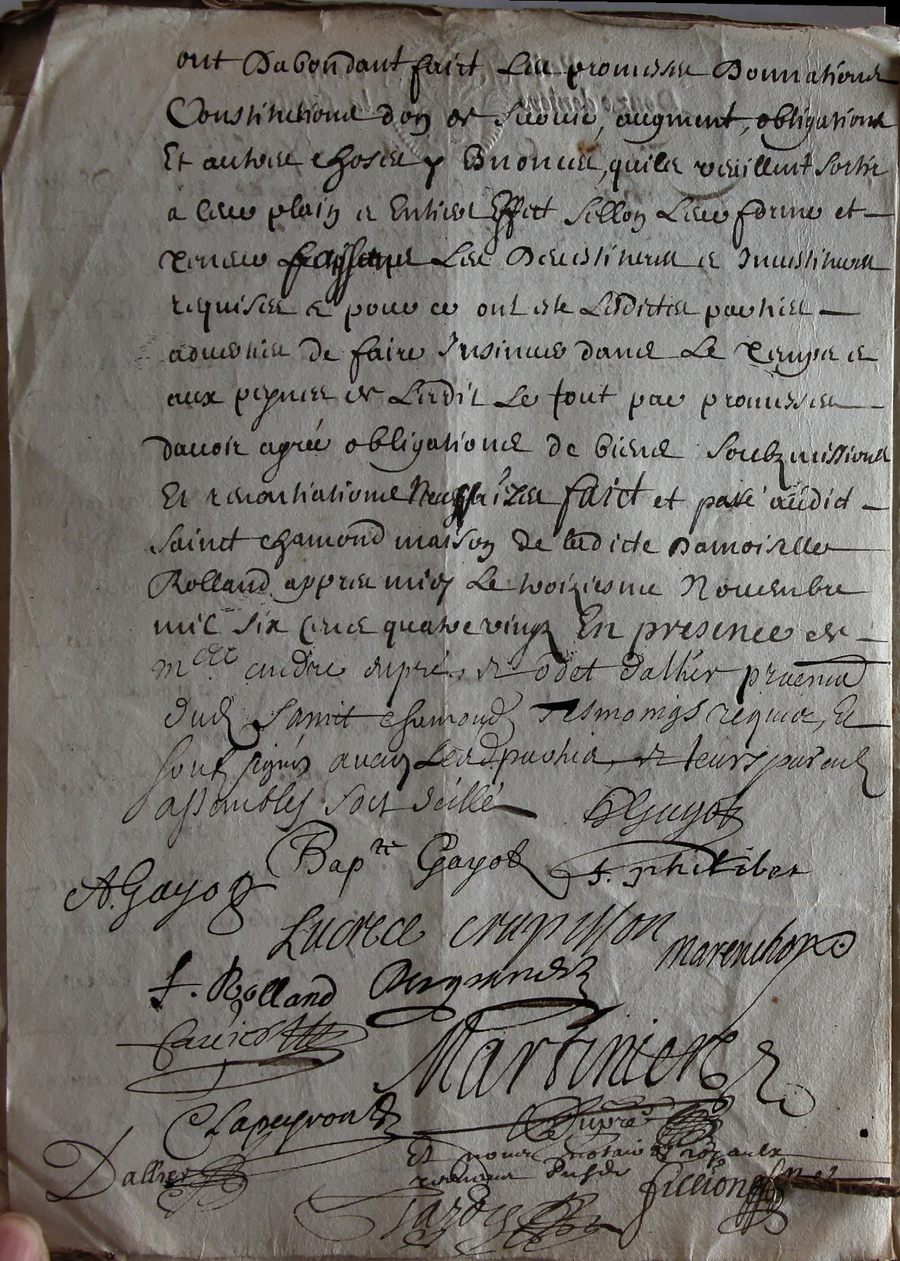 ont Dabondant faict Les promesses Donnations
Constitutions don et survie, augment, obligations
Et autres choses y Enoncees, quils veuillent sortir
a leur plain e Entier Effect sellon Leur forme et
teneur Les Devestitures e Investitures
requises e pour ce ont este Lesdictes parties
adverties de faire Insinuer dans Le temps e
aux peynes de Ledit Le tout par promesses
davoir agreé obligations de biens soubzmissions
Et renontiations Necessaires faict et passé audict
sainct chamond maison de ladicte Damoiselle
Rolland apres midy Le troiziesme Novembre
mil six cens quatre vingtz En presence de
andre dupré, et odet dallier praticiens
dud Sainct chamond Tesmoings requis, Et
soubsignés avecq Lesd parties, et leurs parens
assemblés soit séellé
Guyot
Bapte Gayot
J. philiber
A. Gayot
Lucrece crapisson
Marenchon
J. Rolland
Martiniere
Lapeyrond
Dupré
Dallier
Et nous notaires royaulx
Jardy